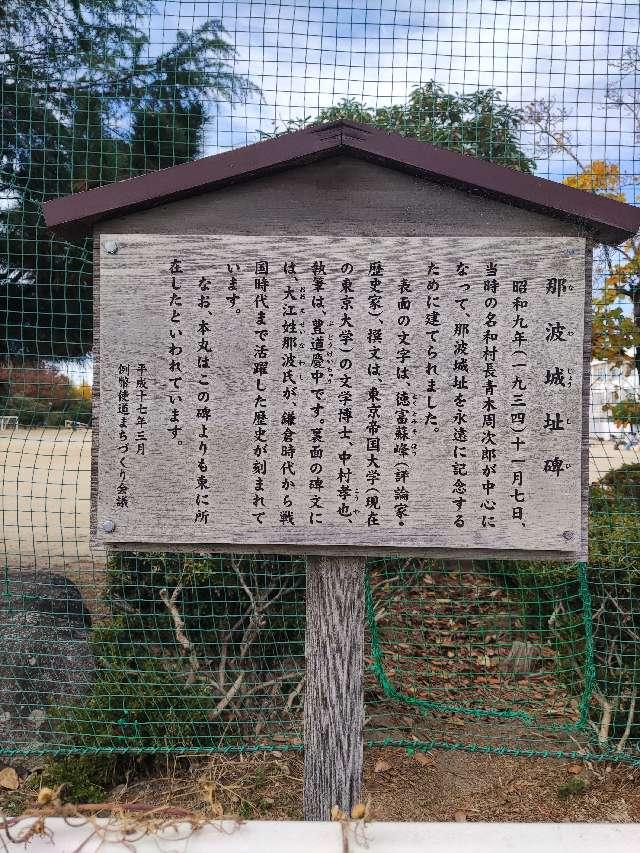 那波城址碑
なわじょうしひ
昭和九年(一九三四)十一月七日、
当時の名和村長青木周次郎が中心に
なって、那波城址を永遠に記念する
ために建てられました。
表面の文字は、徳富蘇峰(評論家・
とくとみそほう
歴史家)、撰文は、東京帝国大学(現在
の東京大学)の文学博士、中村孝也、
こうや
執筆は、豊道慶中です。裏面の碑文に
ぶんどうけいちゅう
は、大江姓那波氏が、鎌倉時代から戦
おおえせいなわし
国時代まで活躍した歴史が刻まれて
います。
なお、本丸はこの碑よりも東に所
在したといわれています。
平成十七年三月
例幣使道まちづくり会議